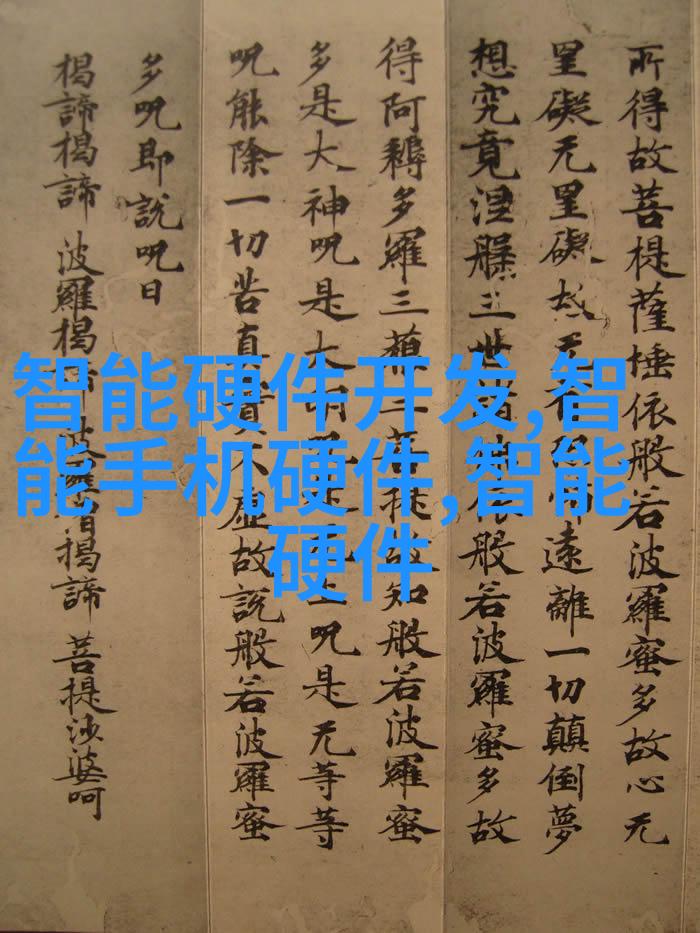 所得故菩提薩埵依般若波羅蜜多故心无
罣礙无罣礙故无有恐怖遠離一切顛倒夢
想究竟涅槃三世諸佛依般若波羅蜜多故
得阿耨多羅三藐三菩提故知般若波羅蜜
多是大神呪是大明呪是无上呪是无等等
呪能除一切苦真實不虛故說般若波羅蜜
多呪即說呪曰
揭諦揭諦 波羅揭諦 波羅僧揭諦 菩提沙婆呵
智能硬件开发,智
能手机硬件,智能
硬件